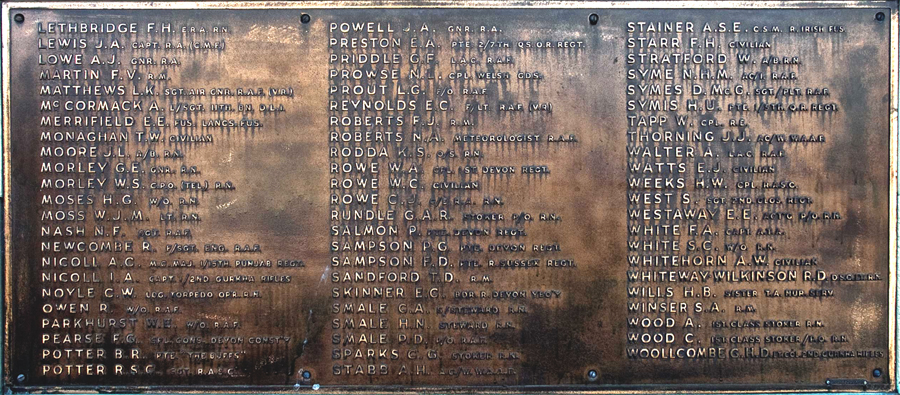 LETHBRIDGE F.H. E.R.A. R.N.
LEWIS J.A. CAPT. R.A. (C.M.F.)
LOWE A.J. GNR. R.A.
MARTIN F.V. R.M.
MATTHEWS L.K. SGT. AIR GNR. R.A.F. (V.R.)
McCORMACK A. L/SGT. 11TH. BN. D.L.I.
MERRIFIELD E.E. FUS. LANCS. FUS.
MONAGHAN T.W. CIVILIAN
MOORE J.L. A/B. R.N.
MORLEY G.E. GNR. R.N.
MORLEY W.S. C.P.O. (TEL.) R.N.
MOSES H.G. W/O. R.N.
MOSS W.J.M. LT. R.N.
NASH N.F. R.A.F.
NEWCOMBE R. F/SGT. ENG. R.A.F.
NICOLL A.C. M.C. MAJ. 1/15TH PUNJAB REGT.
NICOLL I.A. CAPT. /2ND GURKHA RIFLES
NOYLE C.W. LEG. TORPEDO OPR. R.N.
OWEN R. W/O. R.A.F.
PARKHURST W.E. W/O. R.A.F.
PEARSE F.G. CONS. DEVON CONST'Y
POTTER B.R. PTE. "THE BUFFS"
POTTER R.S.C. SGT.
POWELL J.A. GNR. R.A.
PRESTON E.A. PTE 2/7TH. QS. O.R. REGT.
PRIDDLE G.F. L.A.C. R.A.F.
PROWSE N.L. CPL. WELSH GDS.
PROUT L.G. F/O. R.A.F.
REYNOLDS E.C. F/LT. R.A.F. (V.R.)
ROBERTS F.J. R.M.
ROBERTS N.A. METEOROLOGIST R.A.F.
RODDA K.S. O/S. R.N.
ROWE W.A. CPL. 1ST DEVON REGT.
ROWE W.C. CIVILIAN
ROWE C.J. R.N.
RUNDLE G.A.R. STOKER P/O. R.N.
SALMON P. PTE. DEVON REGT.
SAMPSON P.G. PTE. DEVON REGT.
SAMPSON F.D. PTE. R. SUSSEX REGT.
SANDFORD T.D. R.M.
SKINNER E.C. BDR. R. DEVON YEO'Y
SMALE G.A. STEWARD R.N.
SMALE H.N. STEWARD R.N.
SMALE P.D. P/O. R.A.F.
SPARKS C.G. STOKER R.N.
STABB A.H.
STAINER A.S.E. C.S.M. R. IRISH FUS.
STARR F.H. CIVILIAN
STRATFORD W. A/B. R.N.
SYME N.H.M. R.A.F.
SYMES D. McG. SGT/PLT. R.A.F.
SYMIS H.J. PTE. 1/5TH. Q.R. REGT.
TAPP W. CPL. R.E.
THORNING J.J. AC/W. W.A.A.F.
WALTER A. L.A.C. R.A.F.
WATTS E.J. CIVILIAN
WEEKS H.W. CPL. R.A.S.C.
WEST S. SGT 2ND. GLOS. REGT.
WESTAWAY E.E. R.N.
WHITE F.A.
WHITE S.C. W/O. R.N.
WHITEHORN A.W. CIVILIAN
WHITEWAY WILKINSON R.D. R.N.
WILLS H.B. SISTER T.A. NUR. SERV.
WINSER S.A. R.M.
WOOD A. 1ST CLASS STOKER R.N.
WOOD C. 1ST CLASS STOKER/P.O. R.N.
WOOLLCOMBE G.H.D. 2ND GURKHA RIFLES